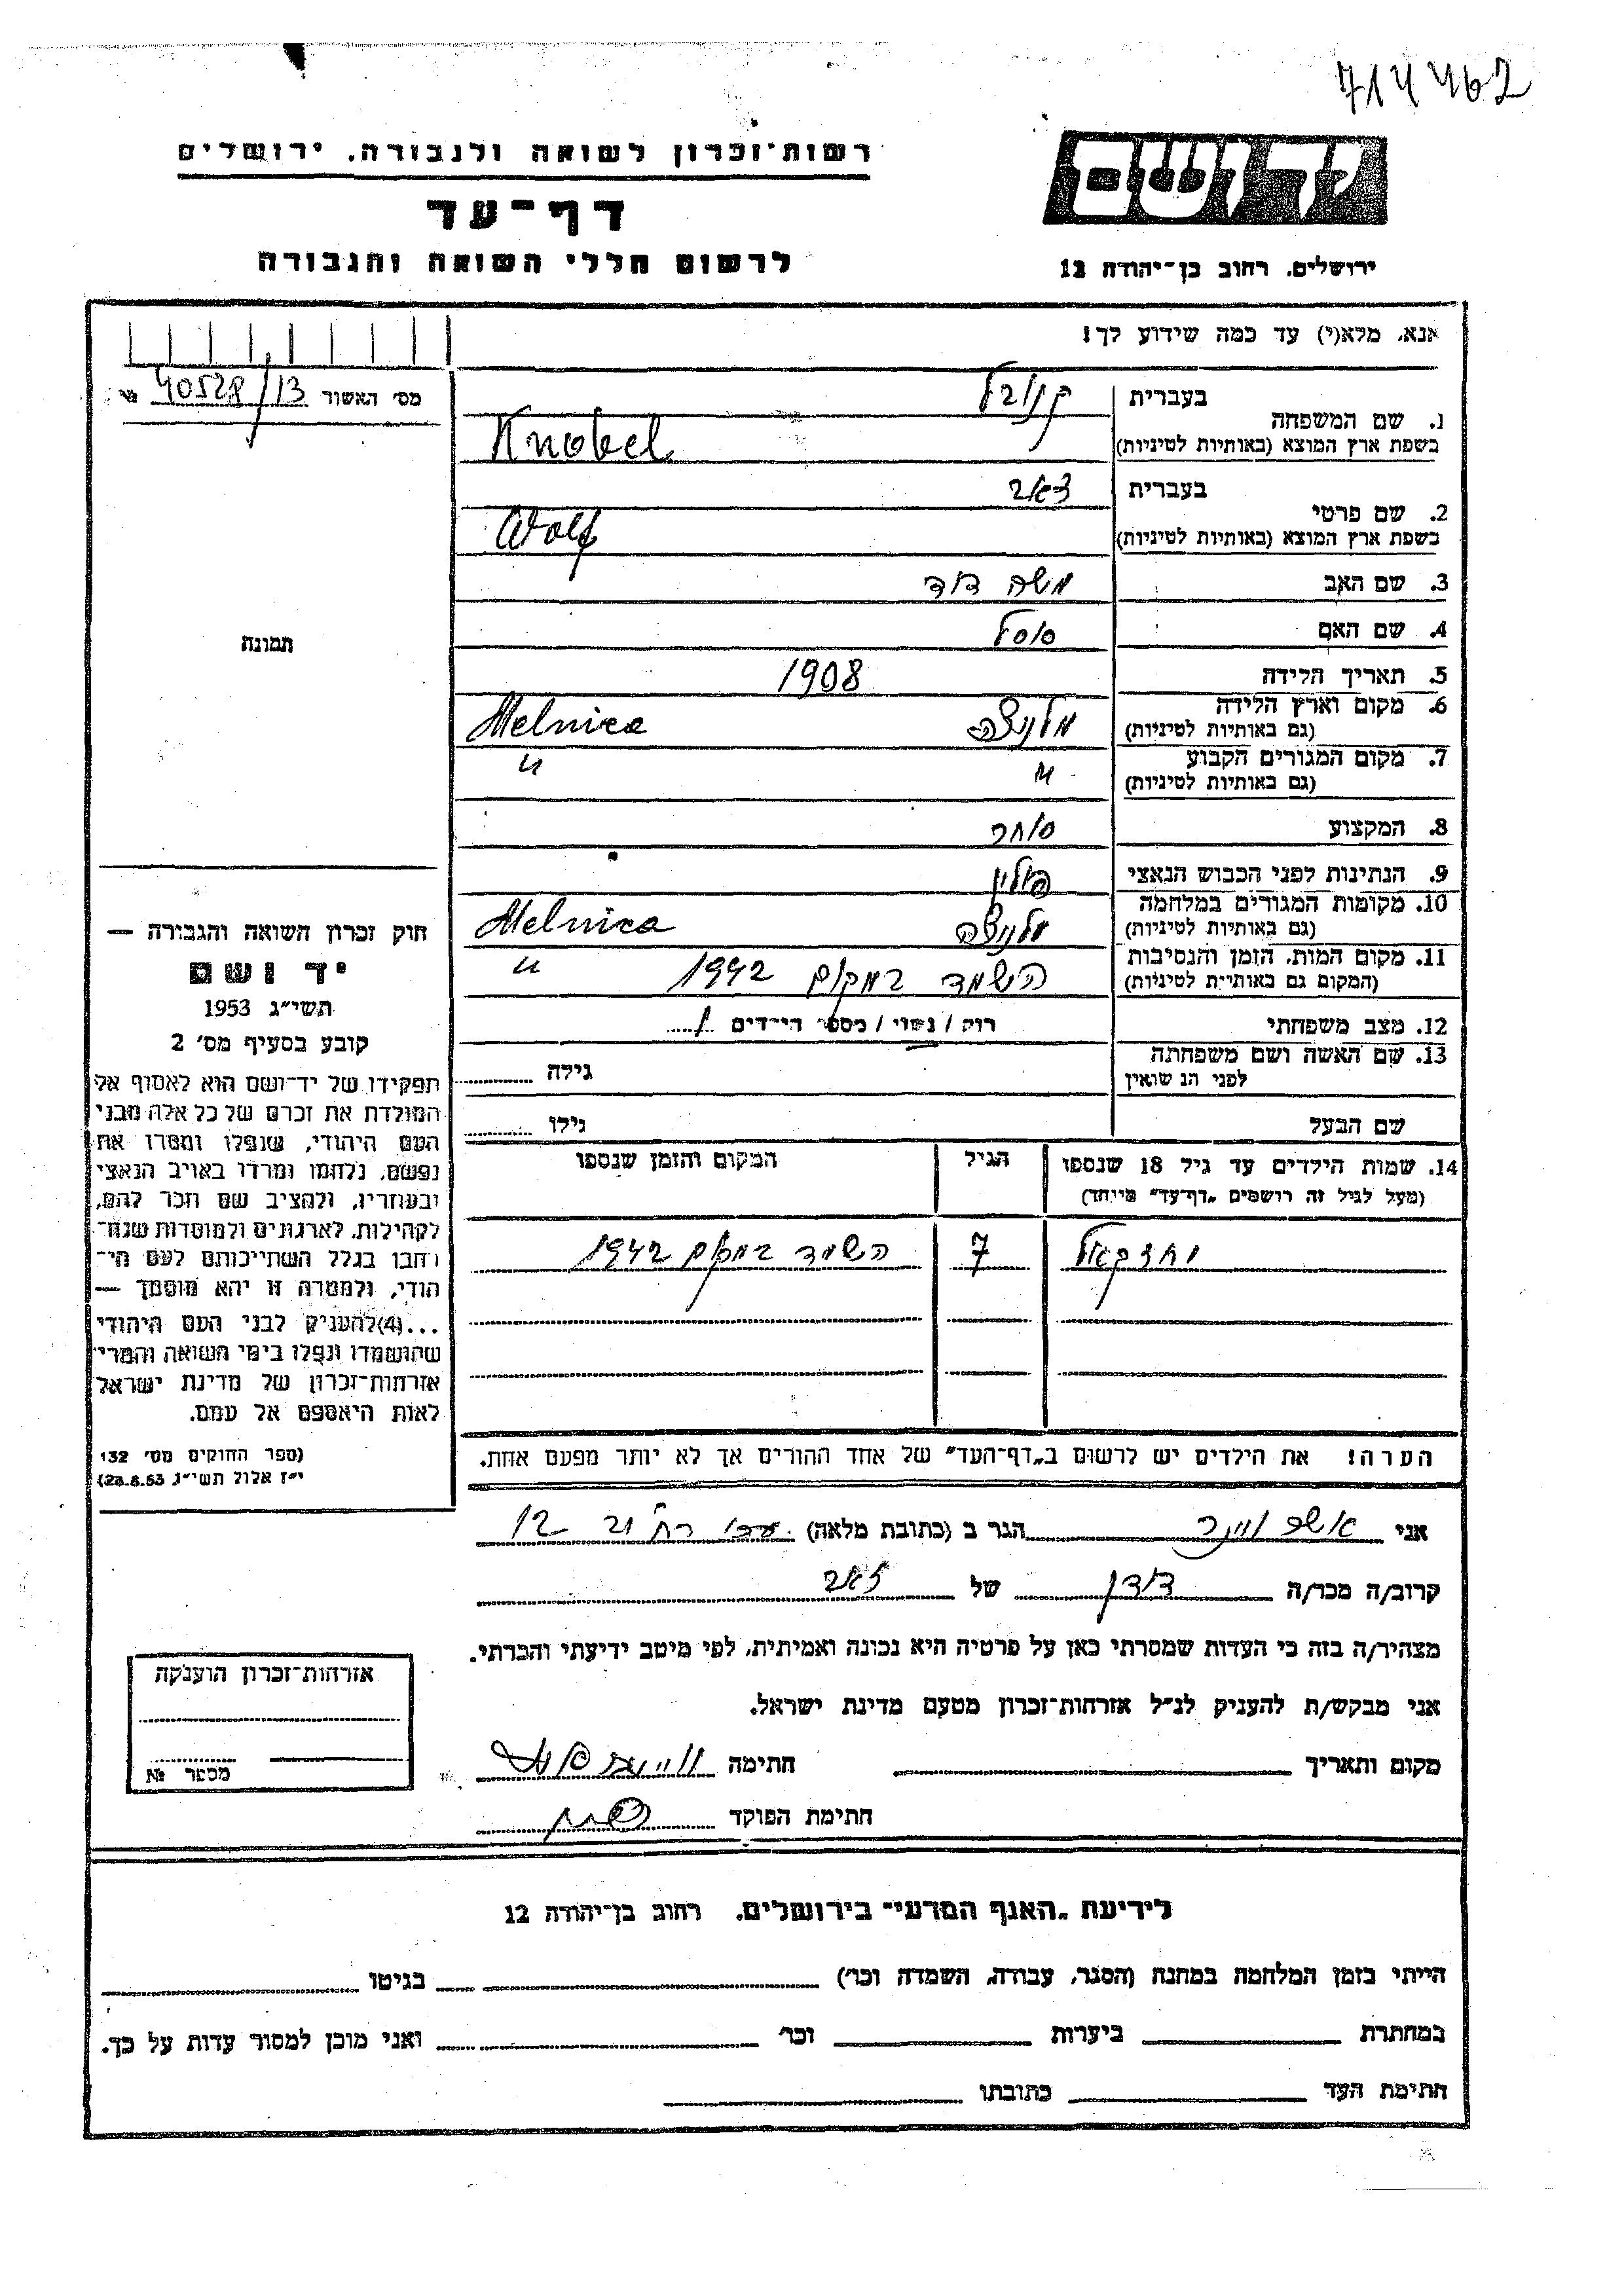 714462
רשות־זכרון לשואה ולגבורה. ירושלים
דף־עד
לרשום חללי השואה והגבורה
יד ושם
ירושלים. רחוב בן־יהודה 12
אנא, מלא(י) עד כמה שידוע לך!
מס׳ האשור 40528/13
1. שם המשפחה
בעברית קנובל
בשפת ארץ המוצא (באותיות לטיניות) Knobel
2. שם פרטי
בעברית זאב
בשפת ארץ המוצא (באותיות לטיניות) Wolf
3. שם האב משה דוד
4. שם האם סוסל
5. תאריך הלידה 1908
6. מקום וארץ הלידה מלניצה Melnica
(גם באותיות לטיניות)
7. מקום המגורים הקבוע " "
(גם באותיות לטיניות)
8. המקצוע סוחר
9. הנתינות לפני הכבוש הנאצי פולין
10. מקומות המגורים במלחמה מלניצה Melnica
(גם באותיות לטיניות)
11. מקום המות, הזמן והנסיבות השמד במקום 1942 "
(המקום גם באותיות לטיניות)
12. מצב משפחתי רוק / נשוי / מספר הילדים 1
13. שם האשה ושם משפחתה
לפני הנשואין
גילה
שם הבעל גילו
14. שמות הילדים עד גיל 18 שנספו הגיל המקום והזמן שנספו
(מעל לגיל זה רושמים „דף־עד" מיוחד)
יחזקאל 7 השמד במקום 1942
הערה! את הילדים יש לרשום ב„דף־העד" של אחד ההורים אך לא יותר מפעם אחת.
תמונה
חוק זכרון השואה והגבורה —
יד ושם
תשי״ג 1953
קובע בסעיף מס׳ 2
תפקידו של יד־ושם הוא לאסוף אל
המולדת את זכרם של כל אלה מבני
העם היהודי, שנפלו ומסרו את
נפשם, נלחמו ומרדו באויב הנאצי
ובעוזריו, ולהציב שם וזכר להם,
לקהילות, לארגונים ולמוסדות שנח־
רבו בגלל השתייכותם לעם הי־
הודי, ולמטרה זו יהא מוסמך —
...(4) להעניק לבני העם היהודי
שהושמדו ונפלו בימי השואה והמרי
אזרחות־זכרון של מדינת ישראל
לאות היאספם אל עמם.
(ספר החוקים מס׳ 132
י״ז אלול תשי״ג 28.8.53)
אני אשר הגר ב (כתובת מלאה) 12
קרוב/ה מכר/ה דודן של זאב
מצהיר/ה בזה כי העדות שמסרתי כאן על פרטיה היא נכונה ואמיתית, לפי מיטב ידיעתי והכרתי.
אני מבקש/ת להעניק לנ״ל אזרחות־זכרון מטעם מדינת ישראל.
מקום ותאריך חתימה
חתימת הפוקד
אזרחות־זכרון הוענקה
מספר №
לידיעת „האגף המדעי" בירושלים. רחוב בן־יהודה 12
הייתי בזמן המלחמה במחנה (הסגר, עבודה, השמדה וכו׳) בגיטו
במחתרת ביערות וכו׳ ואני מוכן למסור עדות על כך.
חתימת העד כתובתו